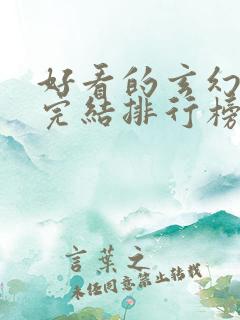 好看的玄幻
完結排行榜
言葉之
未经同意禁止转载